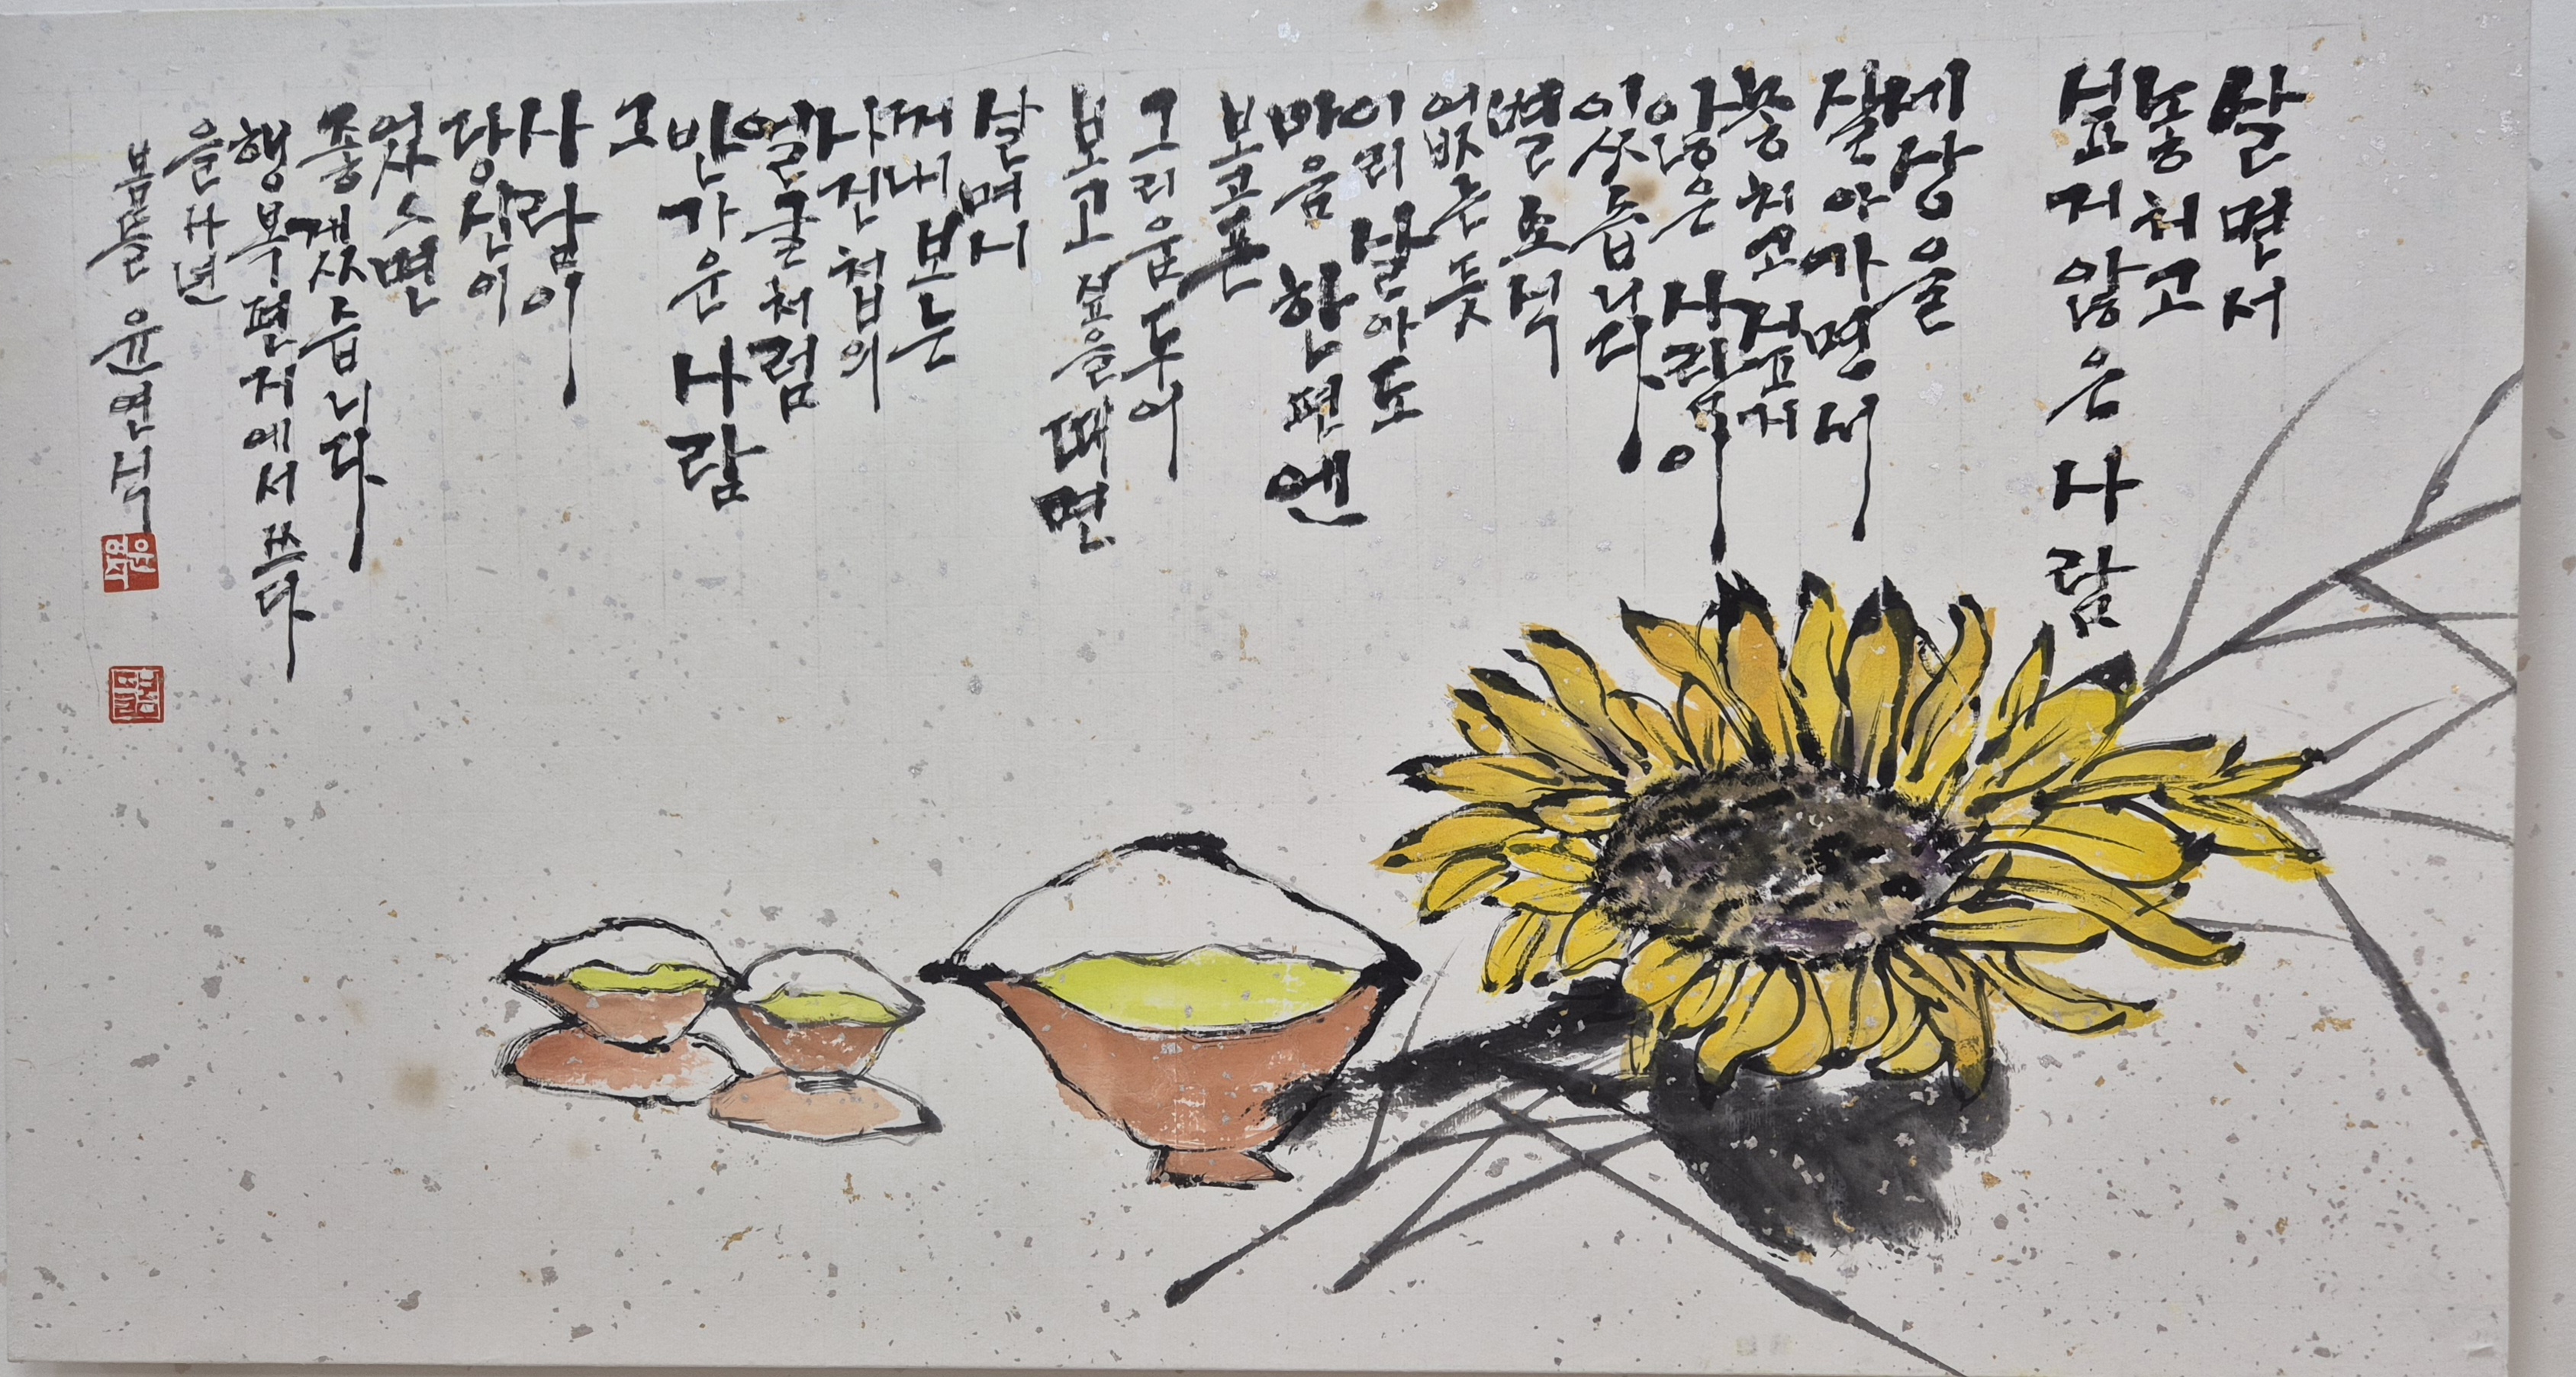 살면서
놓치고
싶지 않은 사람
세상을
살아가면서
놓치고 싶지
않은 사람이
있습니다
별 소식
없는 듯
이리 살아도
마음 한편엔
보고픈
그리움 두어
보고 싶을 때면
살며시
꺼내 보는
사진첩의
얼굴처럼
반가운 사람
그
사람이
당신이
었으면
좋겠습니다
행복편지에서 쓰다
을사년
봄뜰 윤연석